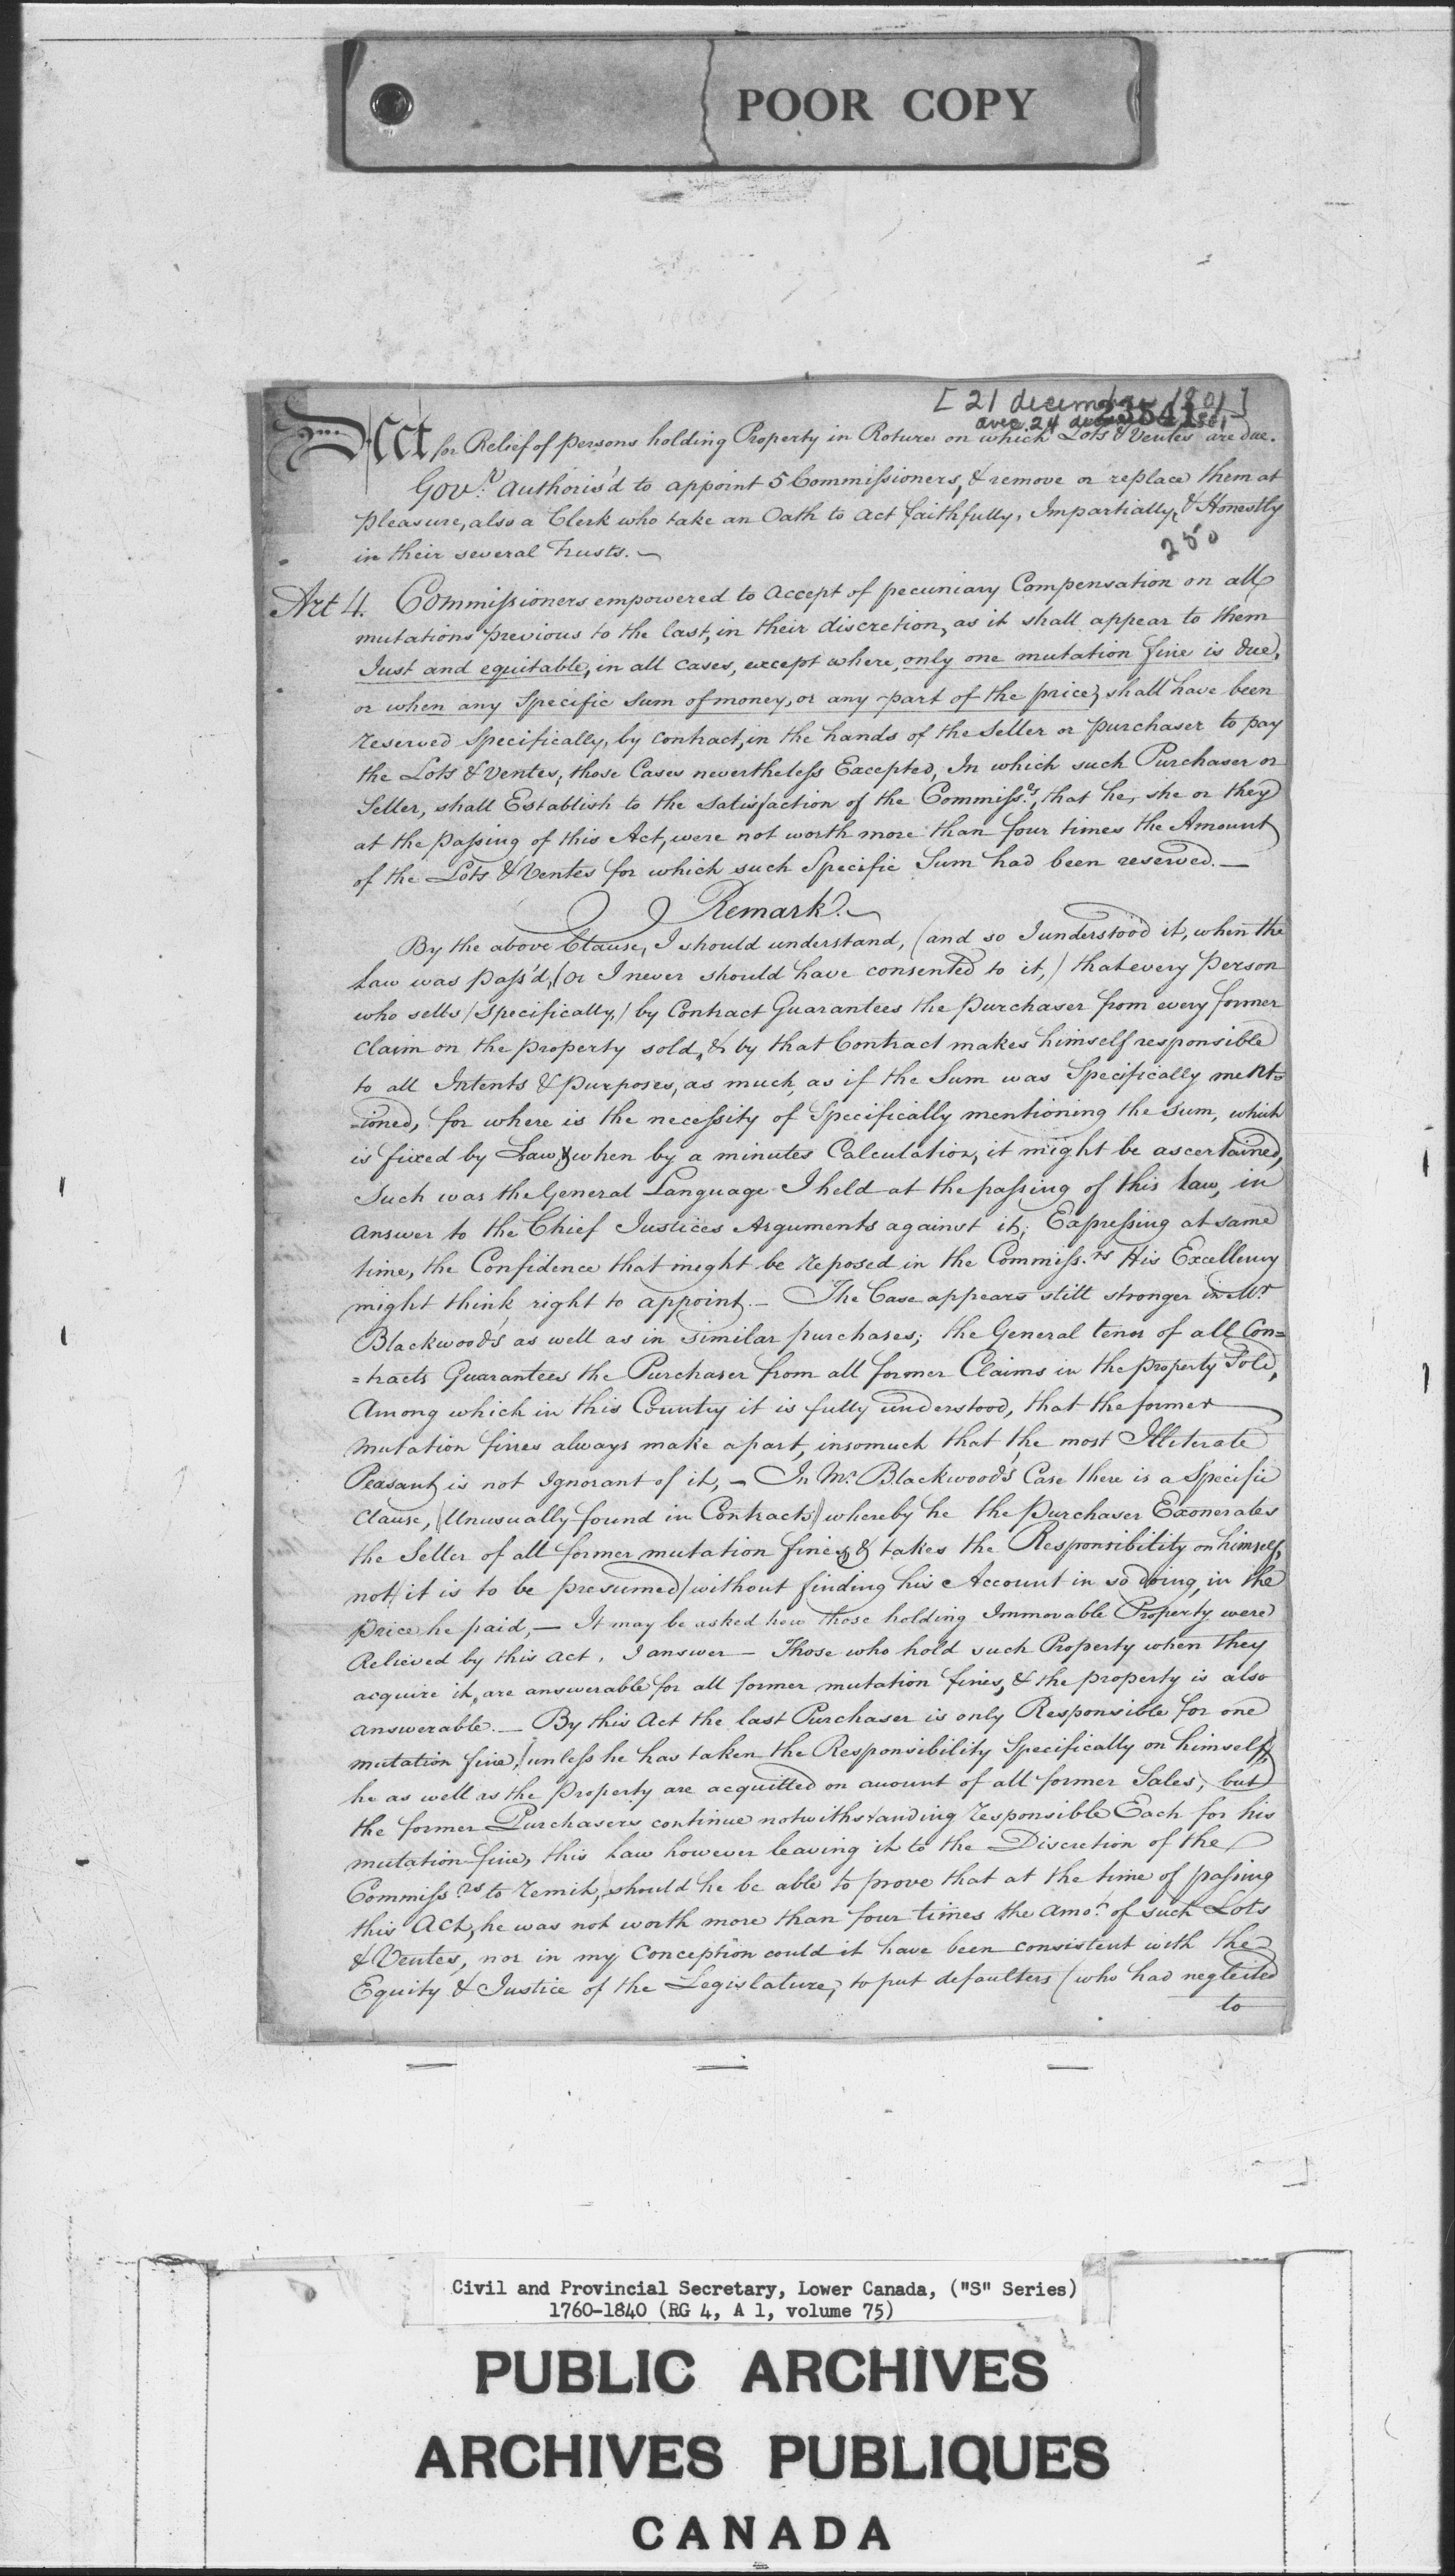 POOR COPY
[21 decembre 1801]
avec 24 dec 1801
23541
Act for Relief of persons holding Property in Roture on which Lots & Ventes are due.
Gov.r authoris'd to appoint 5 Commissioners, & remove or replace them at
pleasure, also a Clerk who take an Oath to act faithfully, Impartially, & Honestly
in their several Trusts. —
250
Art 4. Commissioners empowered to accept of pecuniary Compensation on all
mutations previous to the last, in their discretion, as it shall appear to them
Just and equitable, in all cases, except where, only one mutation fine is due,
or when any Specific Sum of money, or any part of the price, shall have been
reserved Specifically, by contract, in the hands of the Seller or purchaser to pay
the Lots & Ventes, those Cases nevertheless Excepted, In which such Purchaser or
Seller, shall Establish to the satisfaction of the Commiss.rs, that he, she or they
at the passing of this Act, were not worth more than four times the Amount
of the Lots & Ventes for which such Specific Sum had been reserved. —
Remark. —
By the above Clause, I should understand, (and so I understood it, when the
Law was pass'd, (or I never should have consented to it,) that every person
who sells (specifically,) by Contract Guarantees the purchaser from every former
claim on the property sold, & by that Contract makes himself responsible
to all Intents & purposes, as much, as if the Sum was Specifically ment=
=ioned, for where is the necessity of Specifically mentioning the sum, which
is fixed by Law, & when by a minutes Calculation, it might be ascertained,
Such was the General Language I held at the passing of this law, in
answer to the Chief Justices Arguments against it; Expressing at same
time, the Confidence that might be reposed in the Commiss.rs His Excellency
might think right to appoint. — The Case appears still stronger in Mr
Blackwood's as well as in similar purchases; the General tenor of all Con=
=tracts Guarantees the Purchaser from all former Claims in the property Sold,
Among which in this Country it is fully understood, that the former
mutation fines always make a part, insomuch that the most Illiterate
Peasant is not Ignorant of it, — In Mr. Blackwood's Case there is a Specific
Clause, (Unusually found in Contracts) whereby he the Purchaser Exonerates
the Seller of all former mutation fines, & takes the Responsibility on himself,
not (it is to be presumed) without finding his Account in so doing, in the
price he paid, — It may be asked how those holding Immovable Property were
Relieved by this act. I answer — Those who hold such Property when they
acquire it, are answerable for all former mutation fines, & the property is also
answerable. — By this Act the last Purchaser is only Responsible for one
mutation fine, (unless he has taken the Responsibility Specifically on himself)
he as well as the Property are acquitted on account of all former Sales, but
the former Purchasers continue notwithstanding responsible Each for his
mutation fine, this Law however leaving it to the Discretion of the
Commiss.rs to remit, should he be able to prove that at the time of passing
this Act, he was not worth more than four times the amo.t of such Lots
& Ventes, nor in my Conception could it have been consistent with the
Equity & Justice of the Legislature, to put defaulters (who had neglected
to
Civil and Provincial Secretary, Lower Canada, ("S" Series)
1760-1840 (RG 4, A 1, volume 75)
PUBLIC ARCHIVES
ARCHIVES PUBLIQUES
CANADA